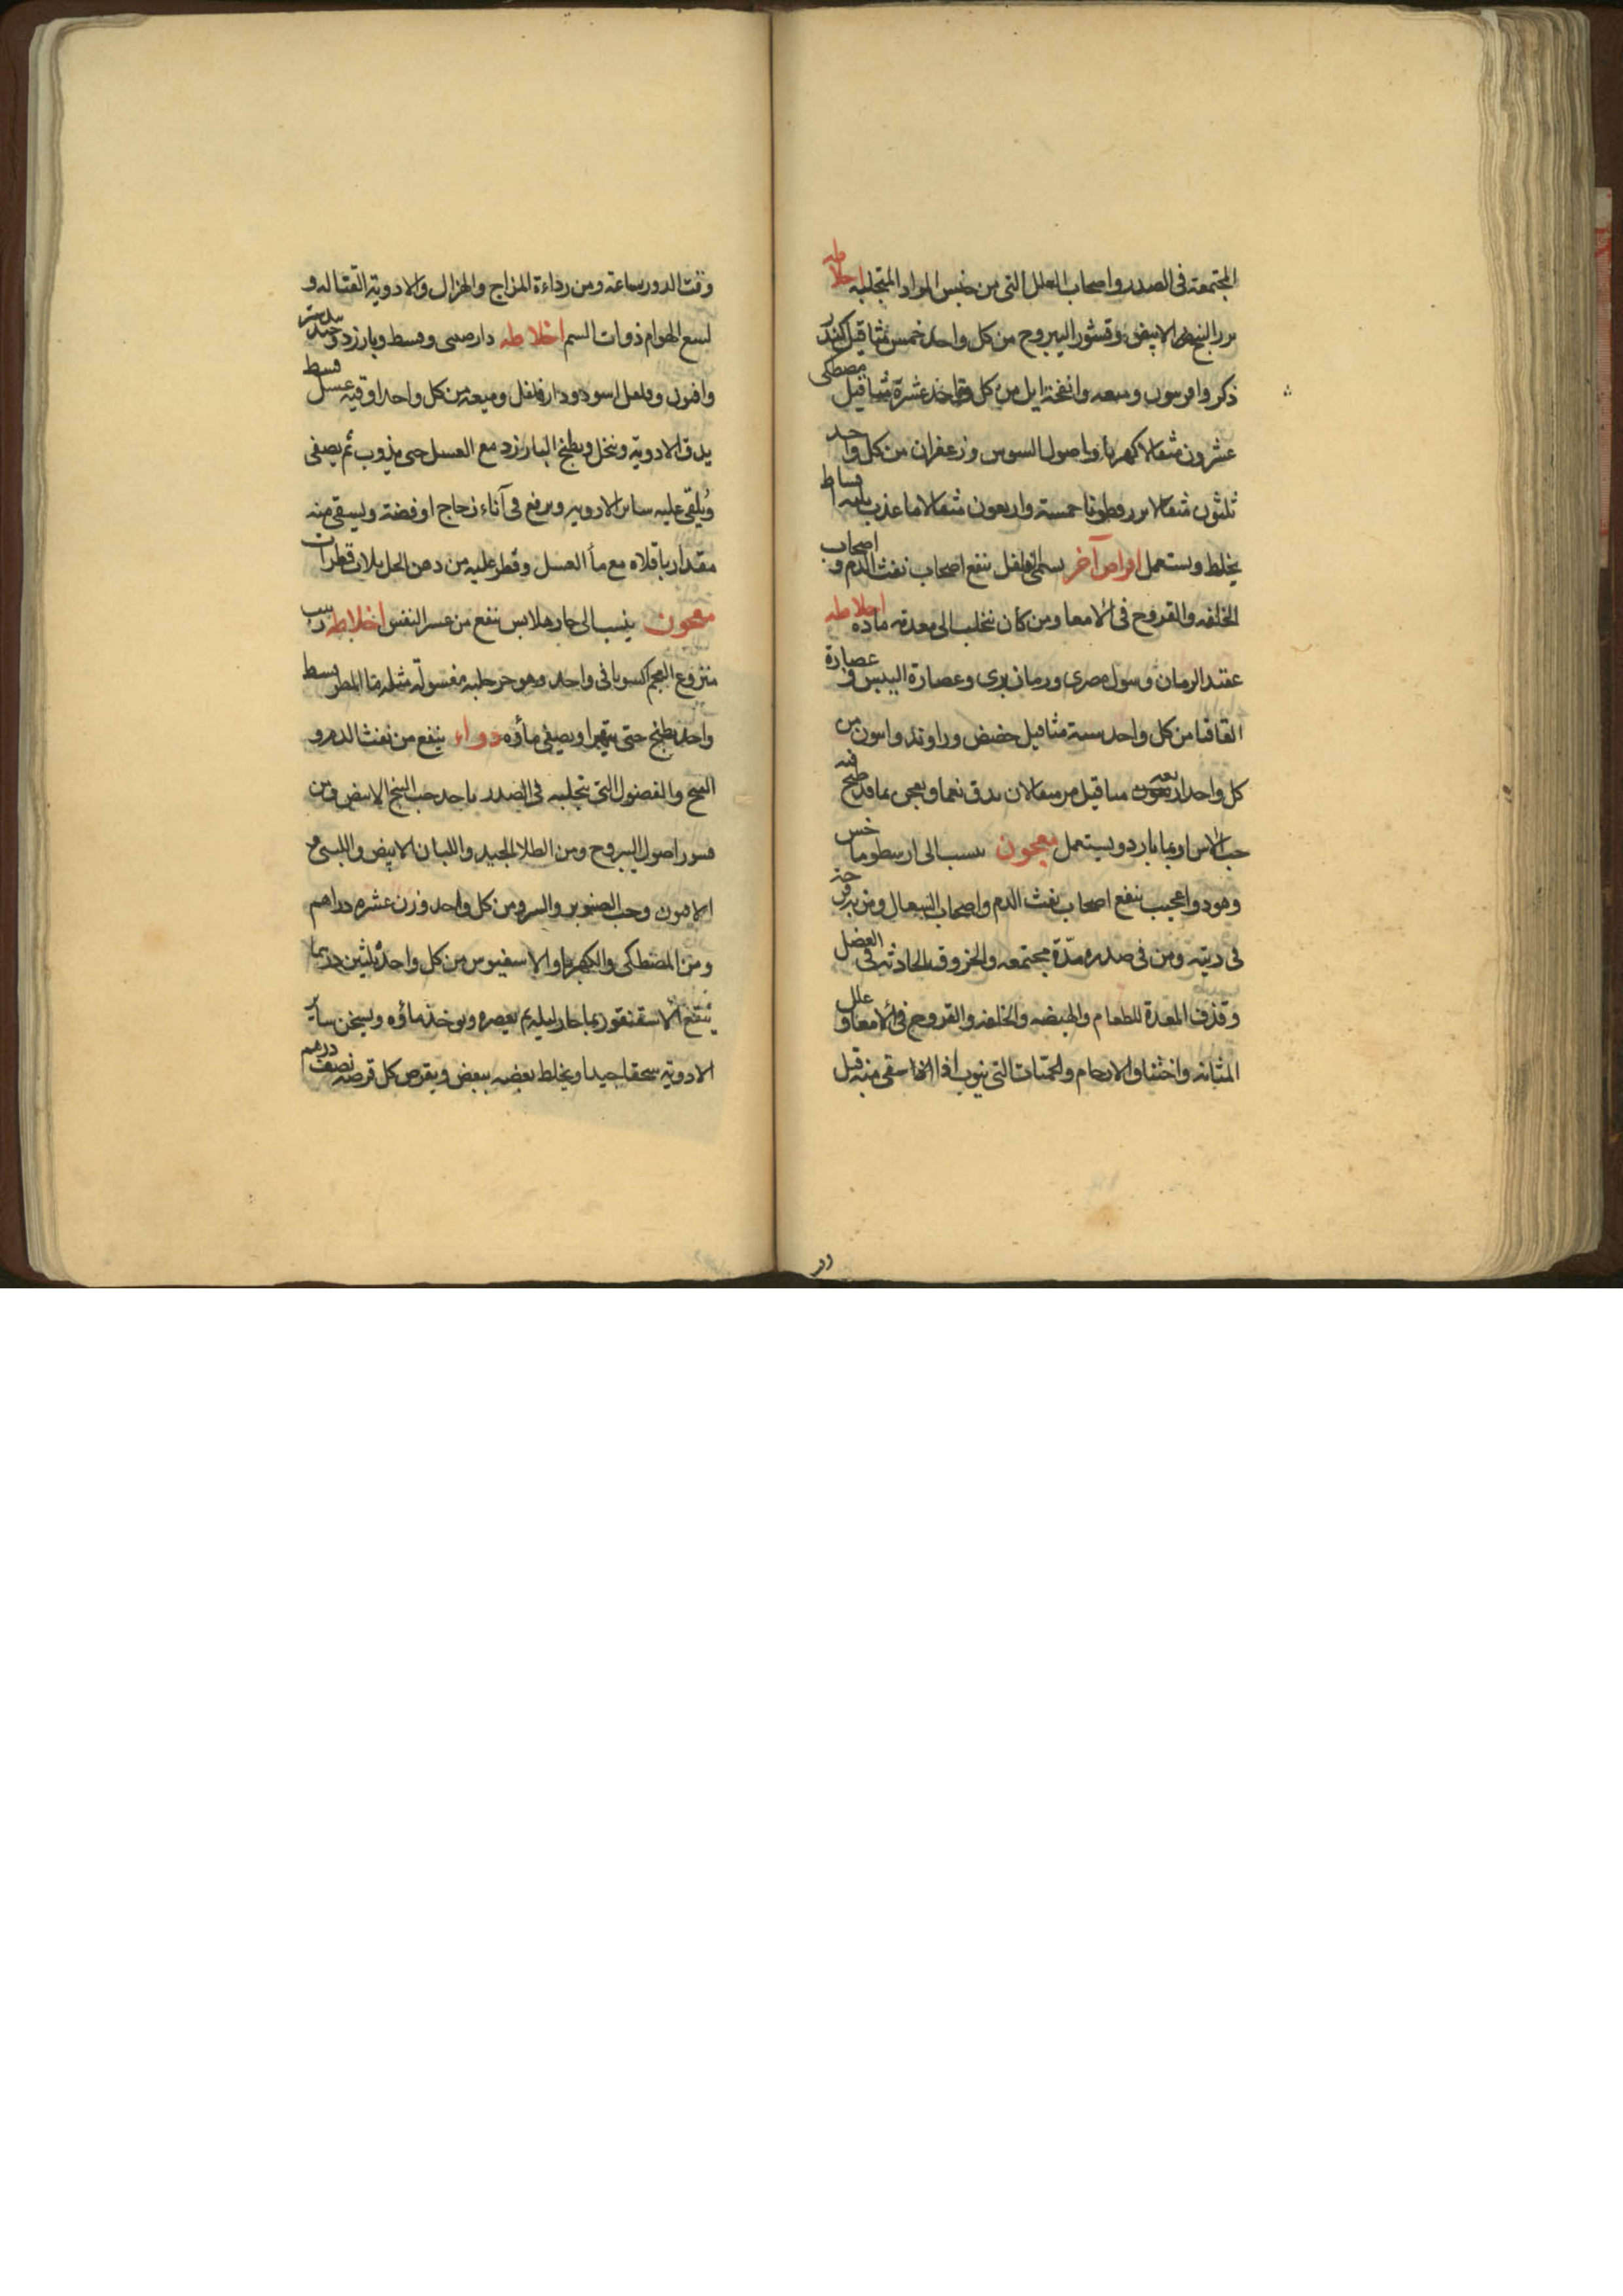 المجتمعة فى الصدر واصحاب العلل التى من جنس المواد المتجلبه اخلاطه
بزر البنج الابيض وقشور اليبروح من كل واحد خمس مثاقيل كندر
ذكر وافيون وميعه وانفخة ايل من كل واحد عشرة مثاقيل مصطكى
عشرون مثقالا كهربا واصول السوس وزعفران من كل واحد
ثلثون مثقالا بزر قطونا خمسة واربعون مثقالا ما عذب ثلثه اقساط
يخلط ويستعمل اقراص آخر يسمى افلفل ينفع اصحاب نفث الدم واصحاب
الخلفه والقروح فى الامعا ومن كان يتحلب الى معدته ماده اخلاطه
عقند الرمان وسول مصرى ورمان برى وعصارة البيس وعصارة
القاقيا من كل واحد ستة مثاقيل حضض وراوند وافيون من
كل واحد اربعه مثاقيل مر مثقالان يدق نعما ويعجن بما قد طبخ فيه
حب الاس او بما بارد ويستعمل معجون ينسب الى ارسطوماخس
وهو دوا عجيب ينفع اصحاب نفث الدم واصحاب السعال ومن به قرحة
فى ريته ومن فى صدره مدّة مجتمعه والخروق الحادثه فى العضل
وقذف المعدة للطعام والهيضه والخلفه والقروح فى الامعا وعلل
المثانه واختناق الارحام والحميات التى تنوب اذا سقى منه قبل
وقت الدور بساعة ومن رداءة المزاج والهزال والادوية القتاله و
لسع الهوام ذوات السم اخلاطه دارصينى وقسط وبارزد وجندبيدستر
وافيون وفلفل اسود ودارفلفل وميعه من كل واحد اوقيه عسل قسط
يدق الادوية وينخل ويطبخ البارزد مع العسل حتى يذوب ثم يصفى
ويُلقى عليه سائر الادويه ويرفع فى آناء زجاج او فضة ويسقى منه
مقدار باقلاه مع مأ العسل وقطر عليه من دهن الحل ثلاث قطرات
معجون ينسب الى جارهلابس ينفع من عسر النفس اخلاطه زبيب
منزوع العجم اكسوبافى واحد وهو حلبه مغسولة مثله ما المطر قسط
واحد يطبخ حتى يتهرا ويصفى ماؤه دواء ينفع من نفث الدم و
القيح والفضول التى تتجلبه فى الصدر ياخد حب البنج الابيض ومن
قشور اصول اليبروح ومن الطلا الجيد واللبان الابيض واللبنى و
الافيون وحب الصنوبر والمر ومن كل واحد وزن عشره دراهم
ومن المصطكى والكهربا والاسفيوس من كل واحد ثلثين درهما
ينقع الاسقنقور بما حار ليله ثم يعصره ويوخذ ماؤه ويسحق ساير
الادوية سحقا جيدا ويخلط بعضه ببعض ويقرص كل قرصه نصف درهم